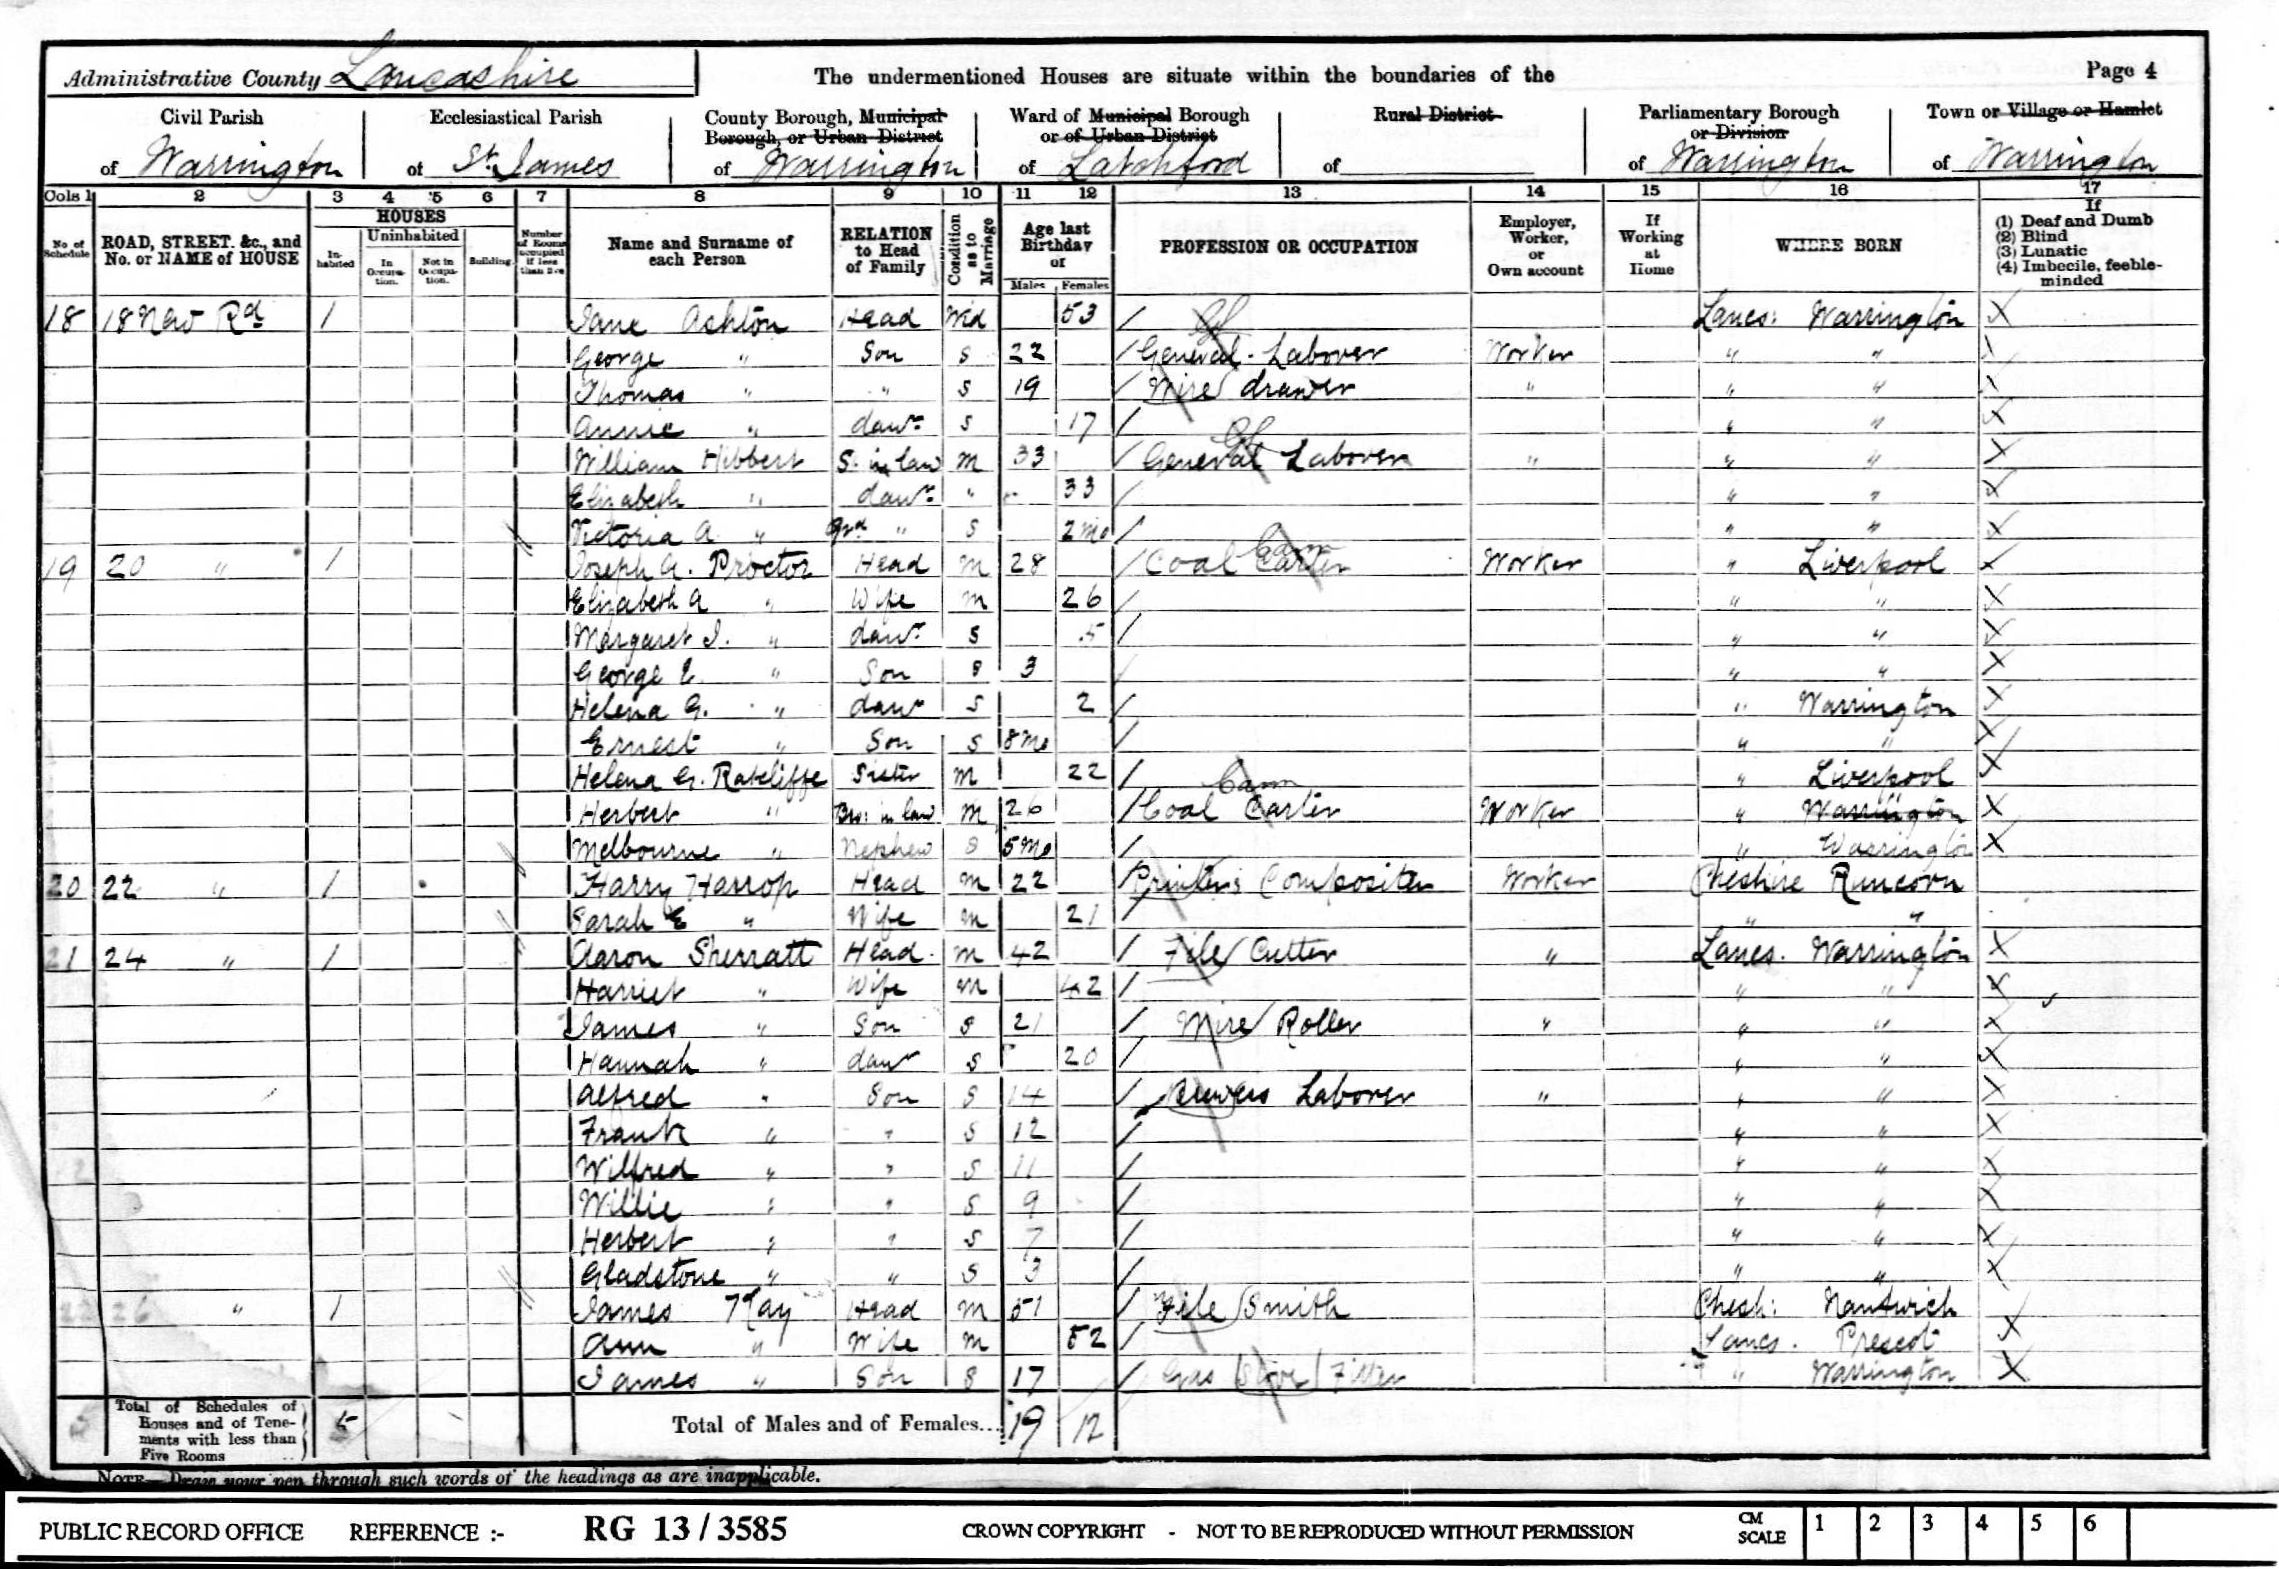 Administrative County Lancashire The undermentioned Houses are situate within the boundaries of the Page 4
Civil Parish Ecclesiastical Parish County Borough, Municipal Borough, or Urban District Ward of Municipal Borough or of Urban District Rural District Parliamentary Borough or Division Town or Village or Hamlet
of Warrington of St. James of Warrington of Latchford of of Warrington of Warrington
Cols 1 2 3 4 5 6 7 8 9 10 11 12 13 14 15 16 17
No of Schedule ROAD, STREET, &c., and No. or NAME of HOUSE HOUSES Inhabited Uninhabited In Occupation. Not in Occupation. Building Number of Rooms occupied if less than five Name and Surname of each Person RELATION to Head of Family Condition as to Marriage Age last Birthday of Males Females PROFESSION OR OCCUPATION Employer, Worker, or Own account If Working at Home WHERE BORN If (1) Deaf and Dumb (2) Blind (3) Lunatic (4) Imbecile, feeble-minded
18 18 New Rd 1 Jane Ashton Head Wid 53 / Lancs: Warrington X
George " Son S 22 / General Laborer Worker " " X
Thomas " " S 19 / Wire drawer " " " X
Annie " dawr S 17 / " " X
William Hibbert S. in law M 33 / General Laborer " " " X
Elizabeth " dawr " 33 / " " X
Victoria A " Grd " S 2 mo / " " X
19 20 " 1 Joseph A. Proctor Head M 28 / Coal Carter Carm Worker " Liverpool X
Elizabeth A " Wife M 26 / " " X
Margaret I. " dawr S 5 / " " X
George E. " Son S 3 / " " X
Helena G. " dawr S 2 / " Warrington X
Ernest " Son S 8 mo / " " X
Helena G. Ratcliffe Sister M 22 / " Liverpool X
Herbert " Bro: in law M 26 / Coal Carter Carm Worker " Warrington X
Melbourne " Nephew S 5 Mo / " Warrington X
20 22 " 1 Harry Harrop Head M 22 / Printers Compositer Worker Cheshire Runcorn
Sarah E " Wife M 21 / " "
21 24 " 1 Aaron Sherratt Head M 42 / File Cutter " Lancs. Warrington X
Harriet " Wife M 42 / " " X
James " Son S 21 / Wire Roller " " " X
Hannah " dawr S 20 / " " X
Alfred " Son S 14 / Brewers Laborer " " " X
Frank " " S 12 / " " X
Wilfred " " S 11 / " " X
Willie " " S 9 / " " X
Herbert " " S 7 / " " X
Gladstone " " S 3 / " " X
22 26 " 1 James Kay Head M 51 / File Smith Chesh: Nantwich
Ann " Wife M 52 / Lancs. Prescot X
James " Son S 17 / Gas Stove Fitter " Warrington X
Total of Schedules of Houses and of Tenements with less than Five Rooms 5 Total of Males and of Females... 19 12
NOTE— Draw your pen through such words of the headings as are inapplicable.
PUBLIC RECORD OFFICE REFERENCE :- RG 13 / 3585 CROWN COPYRIGHT - NOT TO BE REPRODUCED WITHOUT PERMISSION CM SCALE 1 2 3 4 5 6